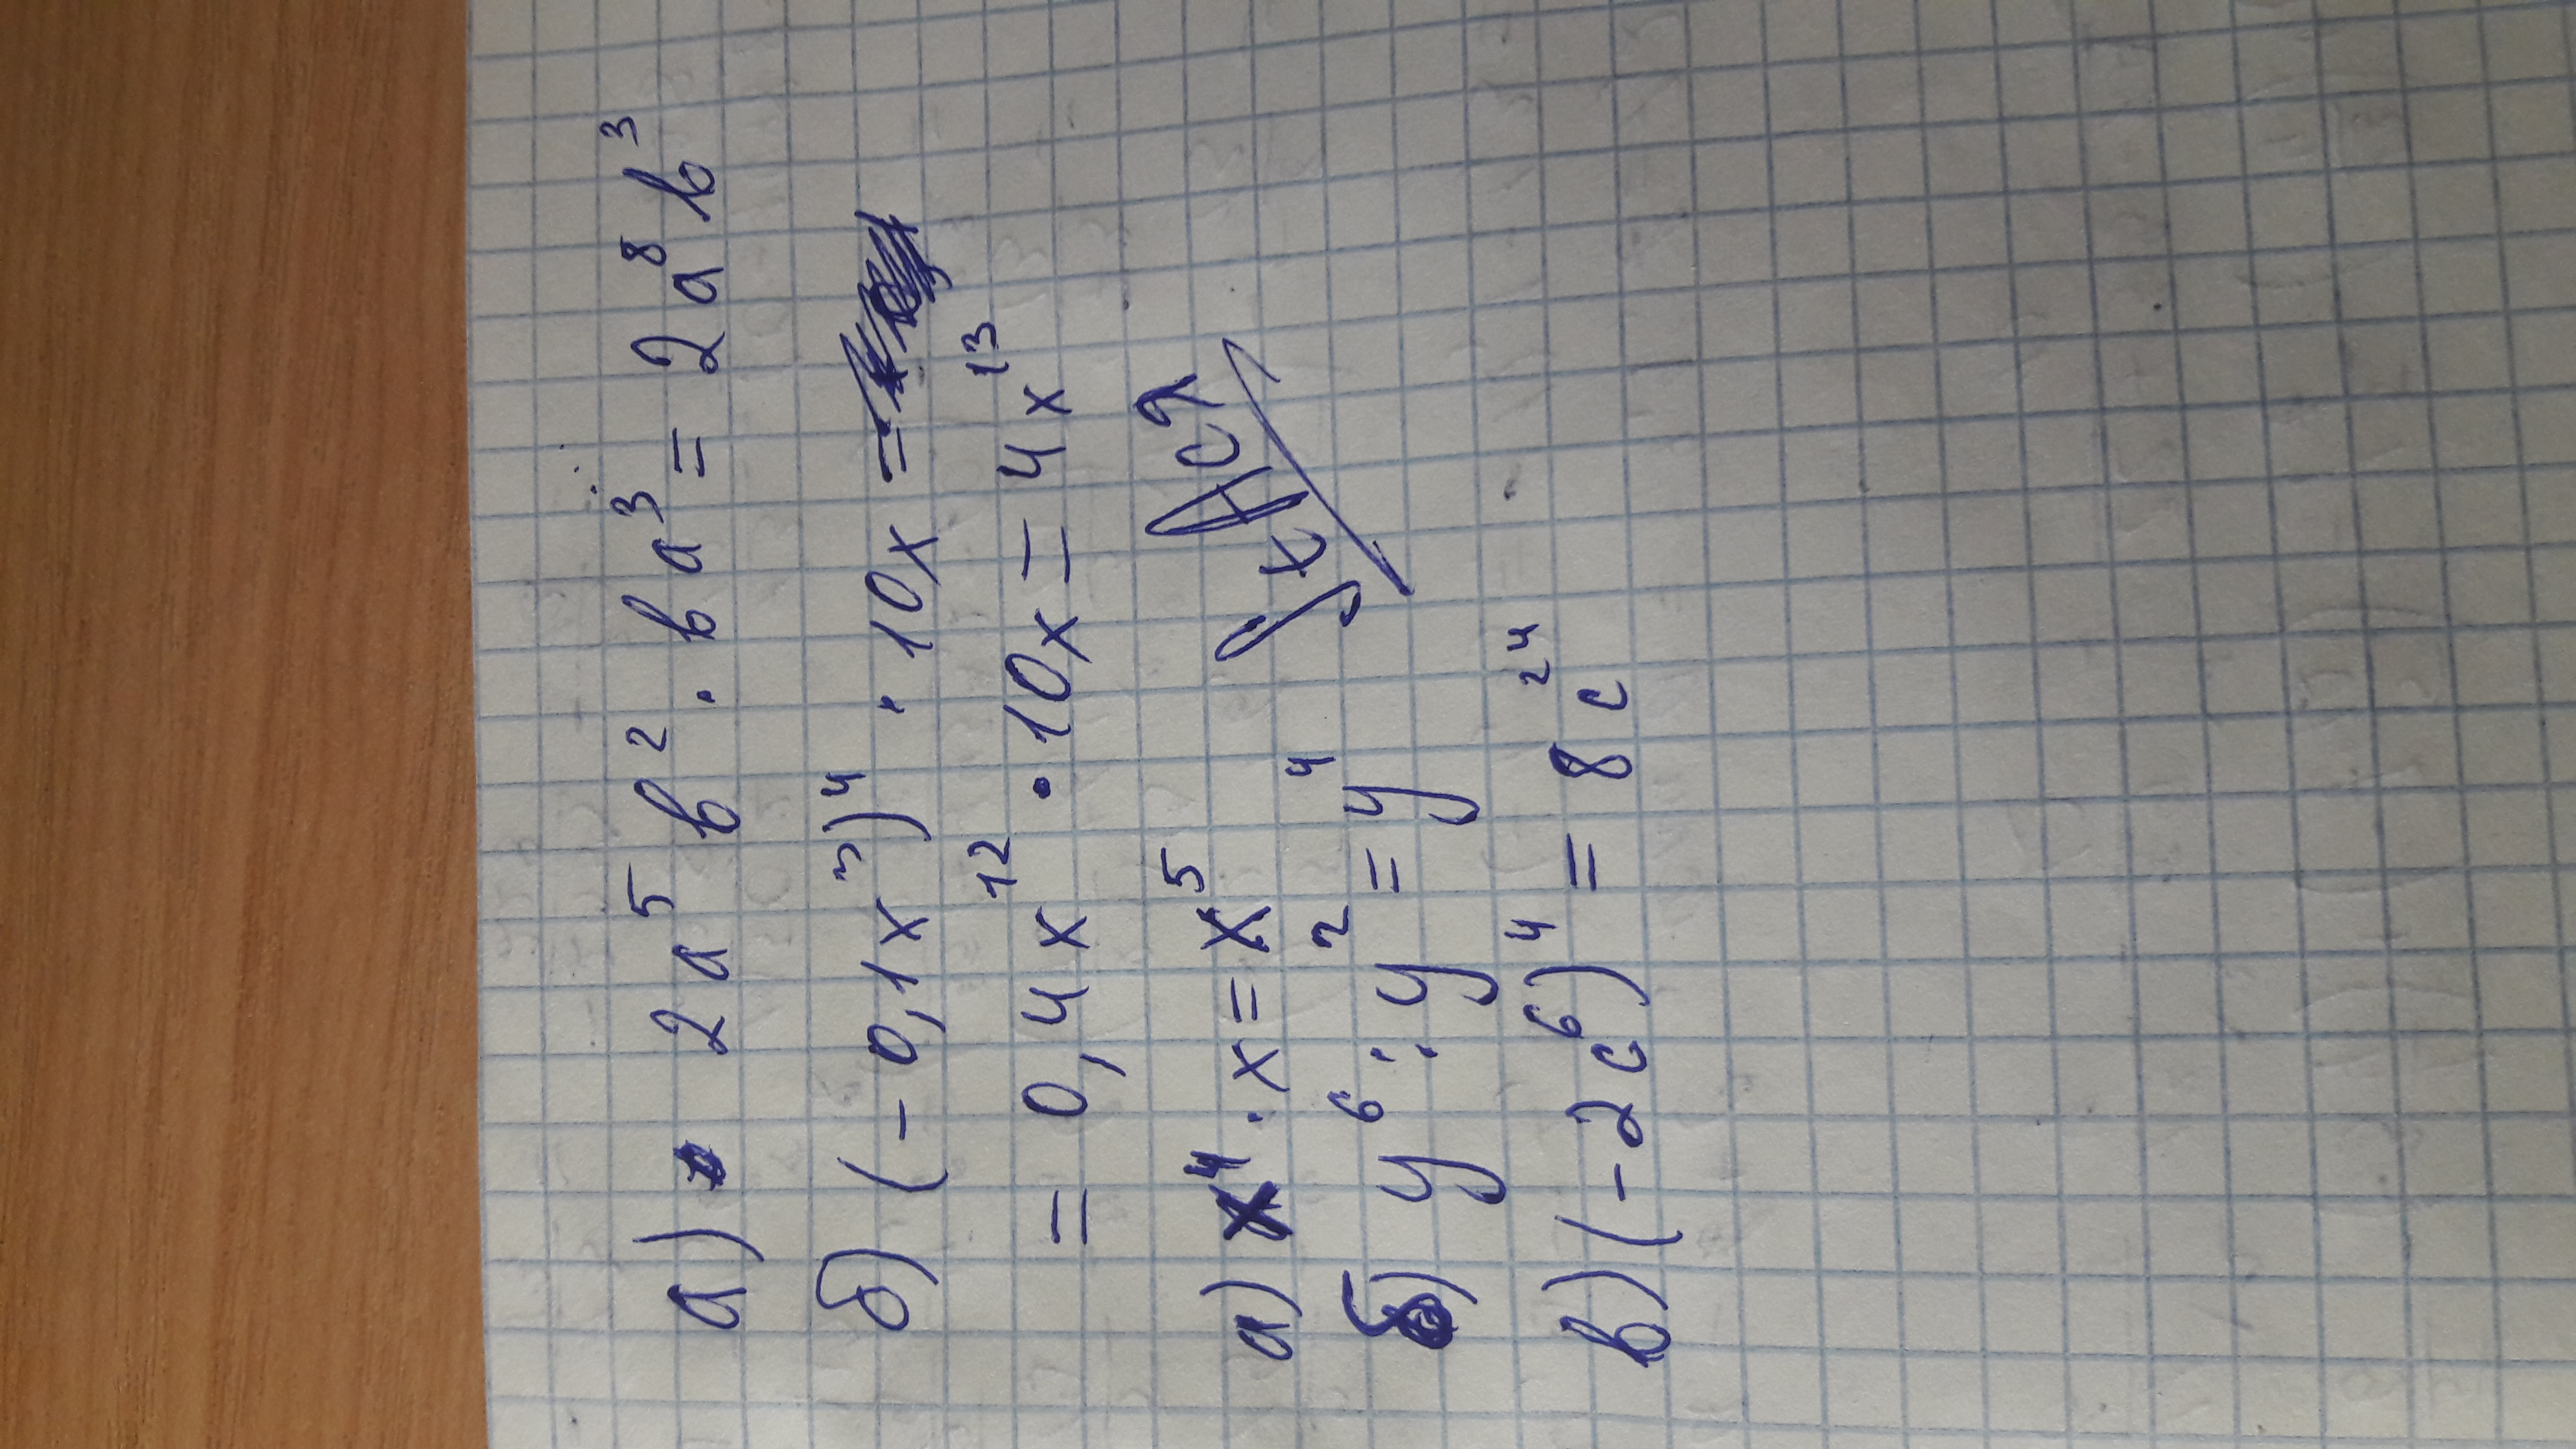 а) 2a⁵b²·ba³ = 2a⁸b³
б) (-0,1x³)⁴ · 10x =
= 0,4x¹² · 10x = 4x¹³
а) x⁴·x = x⁵
б) y⁶ : y² = y⁴
в) (-2c⁶)⁴ = 8c²⁴